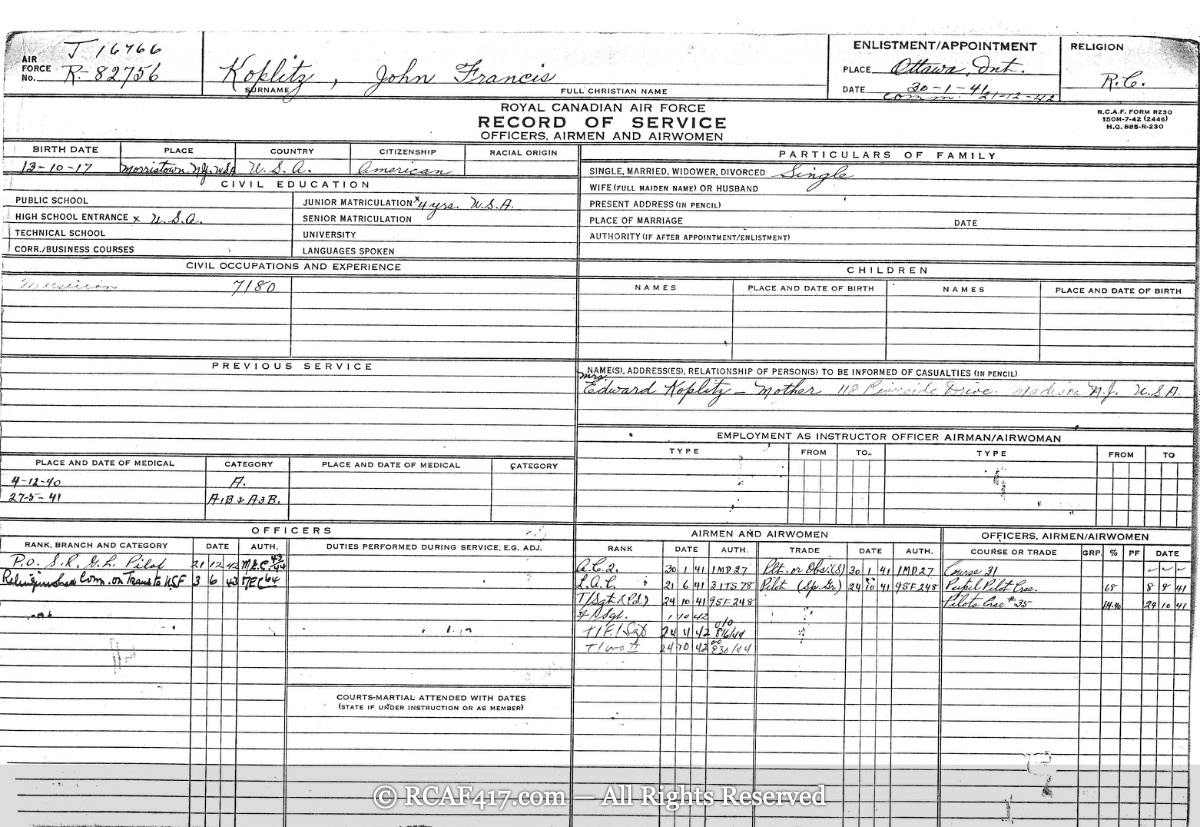 AIR FORCE No. J 16766
R-82756
Koplitz, John Francis
SURNAME FULL CHRISTIAN NAME
ENLISTMENT/APPOINTMENT
PLACE Ottawa, Ont.
DATE 30-1-41
comm. 21-12-42
RELIGION
R.C.
ROYAL CANADIAN AIR FORCE
RECORD OF SERVICE
OFFICERS, AIRMEN AND AIRWOMEN
R.C.A.F. FORM R230
150M-7-42 (2448)
H.Q. 885-R-230
BIRTH DATE PLACE COUNTRY CITIZENSHIP RACIAL ORIGIN
13-10-17 Morristown, N.J. USA U.S.A. American
CIVIL EDUCATION
PUBLIC SCHOOL JUNIOR MATRICULATION x 4 yrs. U.S.A.
HIGH SCHOOL ENTRANCE x U.S.A. SENIOR MATRICULATION
TECHNICAL SCHOOL UNIVERSITY
CORR./BUSINESS COURSES LANGUAGES SPOKEN
CIVIL OCCUPATIONS AND EXPERIENCE
Musician 7180
PREVIOUS SERVICE
PLACE AND DATE OF MEDICAL CATEGORY PLACE AND DATE OF MEDICAL CATEGORY
4-12-40 A.
27-5-41 A1B & A3B.
PARTICULARS OF FAMILY
SINGLE, MARRIED, WIDOWER, DIVORCED Single
WIFE (FULL MAIDEN NAME) OR HUSBAND
PRESENT ADDRESS (IN PENCIL)
PLACE OF MARRIAGE DATE
AUTHORITY (IF AFTER APPOINTMENT/ENLISTMENT)
CHILDREN
NAMES PLACE AND DATE OF BIRTH NAMES PLACE AND DATE OF BIRTH
NAME(S), ADDRESS(ES), RELATIONSHIP OF PERSON(S) TO BE INFORMED OF CASUALTIES (IN PENCIL)
Mrs. Edward Koplitz - Mother 118 Drive. Madison N.J. U.S.A.
EMPLOYMENT AS INSTRUCTOR OFFICER AIRMAN/AIRWOMAN
TYPE FROM TO TYPE FROM TO
OFFICERS
RANK, BRANCH AND CATEGORY DATE AUTH. DUTIES PERFORMED DURING SERVICE, E.G. ADJ.
P.O. S.R. G.L. Pilot 21 12 42
Relinquishes Com. on Trans to USF 3 6 43
COURTS-MARTIAL ATTENDED WITH DATES
(STATE IF UNDER INSTRUCTION OR AS MEMBER)
AIRMEN AND AIRWOMEN
RANK DATE AUTH. TRADE DATE AUTH.
A.C.2. 30 1 41 1MD27 Plt. or Obs.(S) 30 1 41 1MD27
L.A.C. 21 6 41 31TS78 Pilot (Sp. Gr) 24 10 41 9SF248
T/Sgt. (Pd.) 24 10 41 9SF248
1 10 42
T/F/Sgt 24 4 42
T/WO II 24 10 42
OFFICERS, AIRMEN/AIRWOMEN
COURSE OR TRADE GRP. % PF DATE
Course 31
Pupil Pilot Crse. 68 8 9 41
Pilots Crse #35 24 10 41
© RCAF417.com — All Rights Reserved